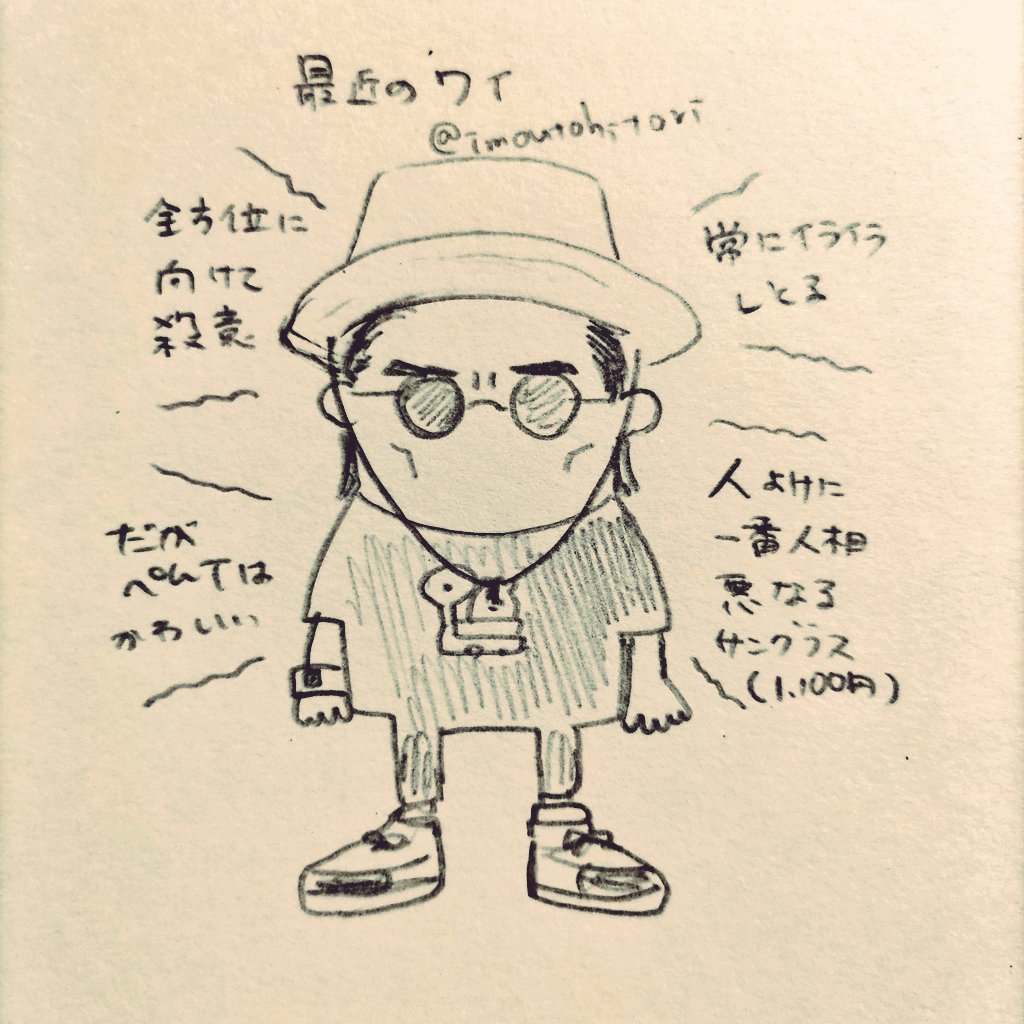 最近のワイ
@imoutohitori
全方位に
向けて
殺意
常にイライラ
しとる
だが
ペムては
かわいい
人よけに
一番人相
悪なる
サングラス
(1,100円)